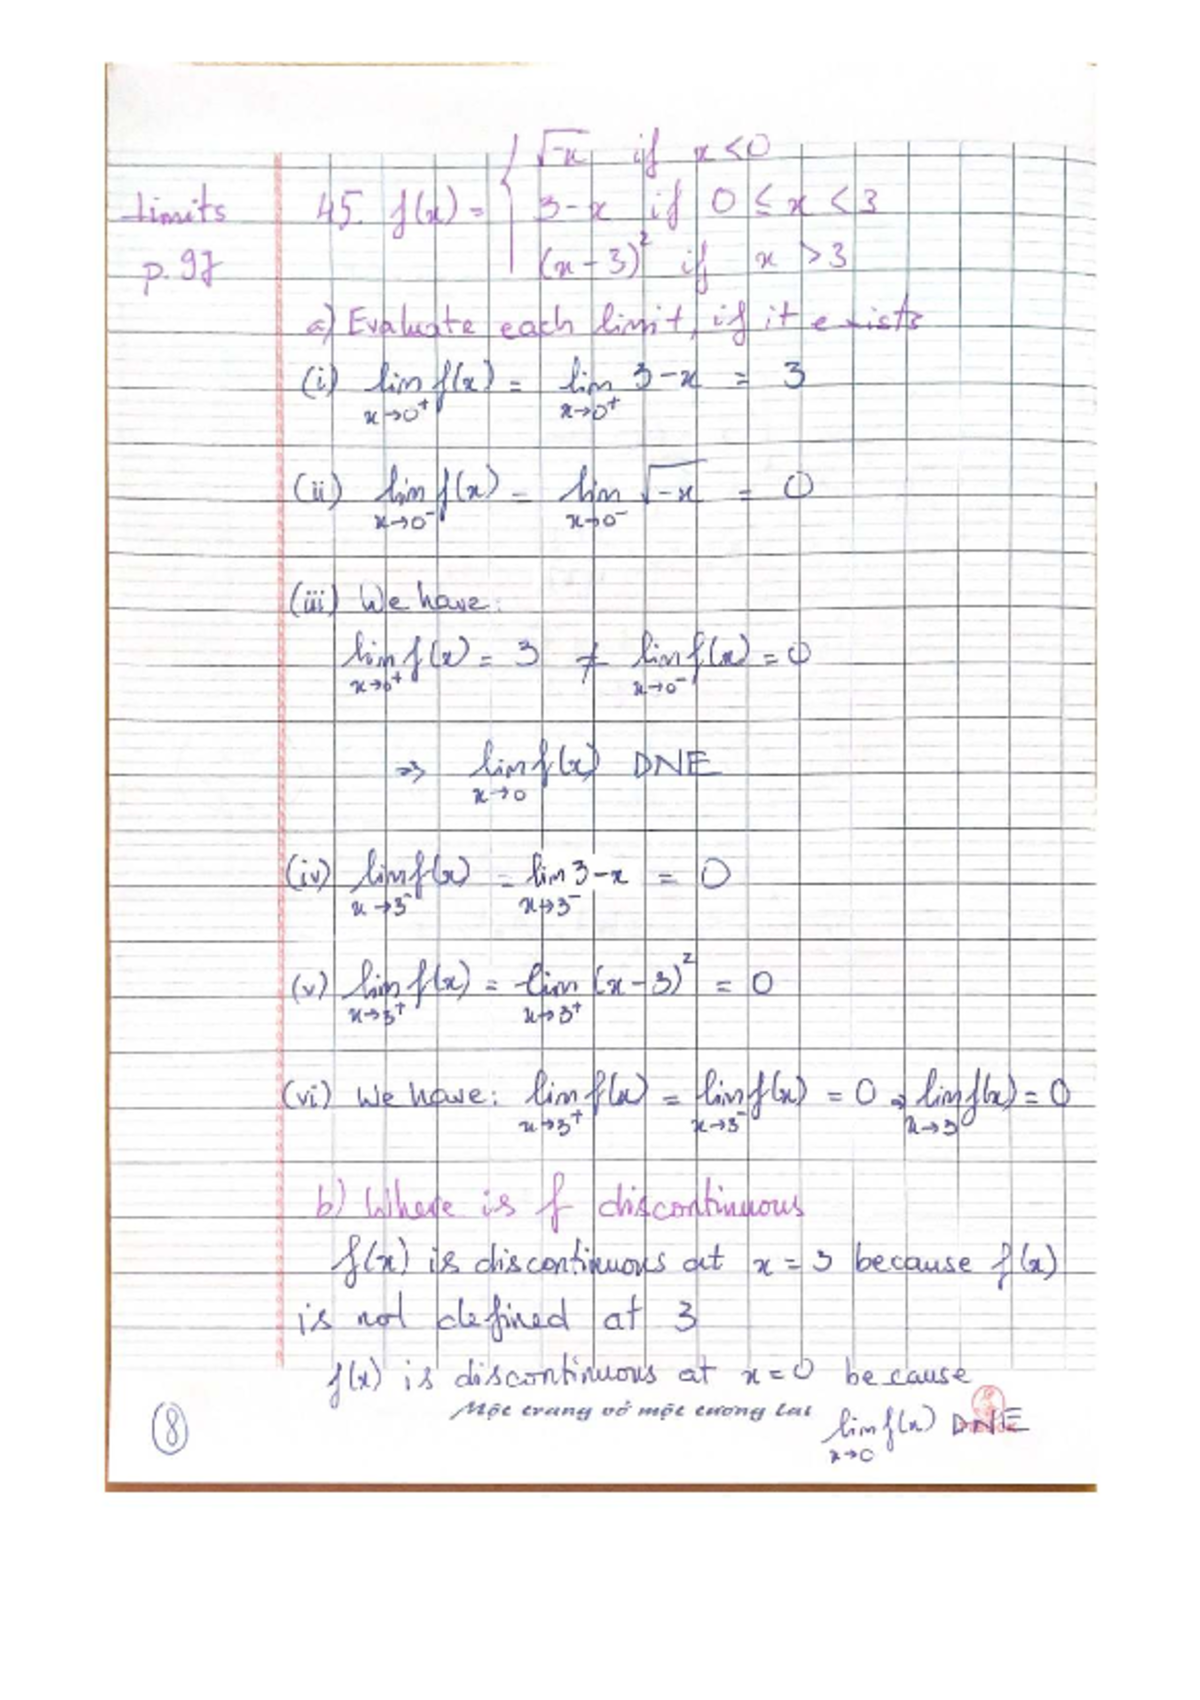 Limits
p.97
45. f(x) = { √-x if x < 0
3-x if 0 ≤ x < 3
(x-3)² if x > 3
a) Evaluate each limit, if it exists
(i) lim f(x) = lim 3-x = 3
x→0⁺ x→0⁺
(ii) lim f(x) = lim √-x = 0
x→0⁻ x→0⁻
(iii) We have:
lim f(x) = 3 ≠ lim f(x) = 0
x→0⁺ x→0⁻
⇒ lim f(x) DNE
x→0
(iv) lim f(x) = lim 3-x = 0
x→3⁻ x→3⁻
(v) lim f(x) = lim (x-3)² = 0
x→3⁺ x→3⁺
(vi) We have: lim f(x) = lim f(x) = 0 ⇒ lim f(x) = 0
x→3⁺ x→3⁻ x→3
b) Where is f discontinuous
f(x) is discontinuous at x = 3 because f(x)
is not defined at 3
f(x) is discontinuous at x = 0 because
lim f(x) DNE
x→0
Một trang vở một tương lai
(8)